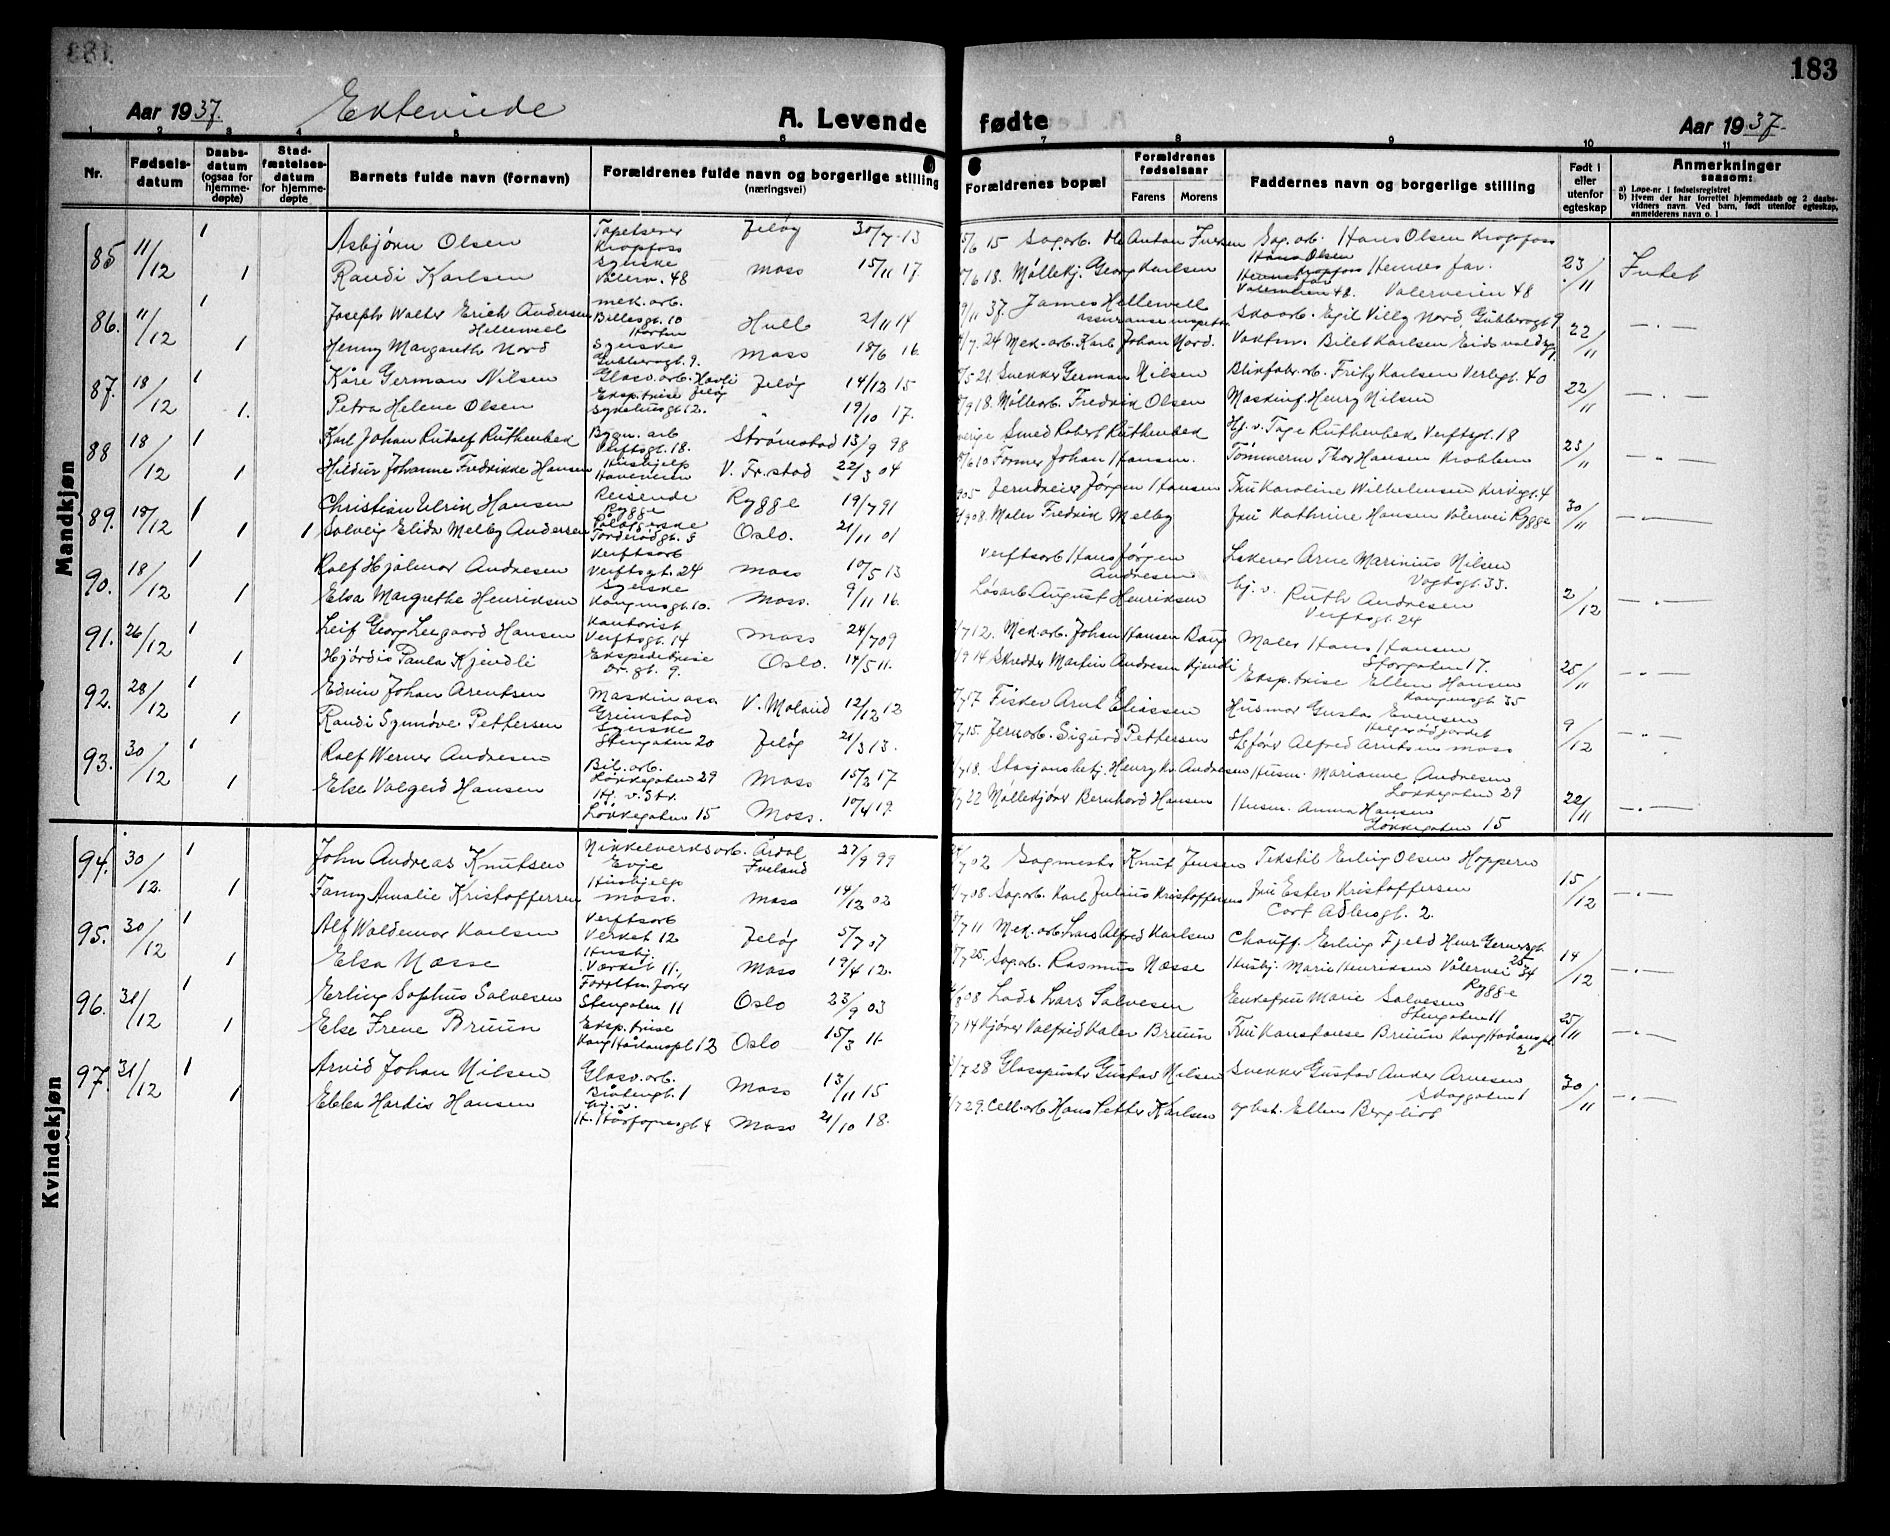 183
Aar 1937. Ekteviede A. Levende fødte Aar 1937.
1 2 3 4 5 6 7 8 9 10 11
Nr.
Fødselsdatum
Daabsdatum (ogsaa for hjemmedøpte)
Stadfæstelsesdatum for hjemmedøpte
Barnets fulde navn (fornavn)
Forældrenes fulde navn og borgerlige stilling (næringsvei)
Forældrenes bopæl
Forældrenes fødselsaar
Farens
Morens
Faddernes navn og borgerlige stilling
Født i eller utenfor egteskap
Anmerkninger saasom:
a) Løpe-nr. i fødselsregistret
b) Hvem der har forrettet hjemmedaab og 2 daabsvidners navn. Ved barn, født utenfor egteskap, anmelderens navn o. l
Mandkjøn
85 11/12 1 Asbjørn Olsen Tapetserer Kropfoss Jeløy 30/7-13 5/6 15 Sag.arb. Ole Anton Iversen Sag.arb. Hans Olsen Kropfoss
1 Randi Karlsen Syerske Vålerv. 48 Moss 15/11 17. /6 18. Møllekj. Georg Karlsen Hennes far. Valerveien 48 23/11 Intet
86. 11/12 1 Joseph Walter Erich Andersen Hellewell mek. arb. Billesgt. 10 Horten Hull 2/11 14 9/11 37. James Hellewell assuranseinspektør Skoarb. Egil Villy Nord Gubberogt 9
1 Henny Margareth Nord Syerske Gubberogt. 9. Moss 18/6 16. /7. 24 Mek. arb. Karl Johan Nord. Vaktm. Bilet Karlsen Eidsvoldsgt 22/11 — " —
87. 18/12 1 Kåre German Nilsen Glasv. arb. Havli Jeløy Jeløy 14/12 15 /5 21. Snekker German Nilsen Blikfab.arb. Fritz Karlsen Verlegt. 40
1. Petra Helene Olsen Eksp.trise Sykehusgt 12. " 19/10 17. /9 18. Møllearb. Fredrik Olsen Maskinf. Henry Nilsen 22/11 — " —
88 18/12 1 Karl Johan Rudolf Ruthenbeck Bygn. arb Verftsgt. 18. Strømstad 13/9 98 Smed Robert Ruthenbeck Hj. v. Tage Ruthenbeck Verftsgt. 18
1 Hildur Johanne Fredrikke Hansen Hushjelp Haveveien V. Fr.stad 22/3 04 /6 10 Former Johan Hansen. Tømmerm Thor Hansen Krokken 23/11 — " —
89. 18/12 1 Christian Ulrik Hansen Reisende Rygge Rygge 19/7 91 905 Jerndreier Jørgen Hansen Fru Karoline Wilhelmsen Kirkegt. 4
1 1 Solveig Elida Melby Andersen Tordenrødgt. 3 Oslo. 21/11 01 1908. Maler Fredrik Melby Fru Kathrine Hansen Vålervei Rygge 30/11 — " —
90. 18/12 1 Rolf Hjalmar Andresen Verftsarb Verftsgt. 24 Moss 10/5 13 Verftsarb Hans Jørgen Andresen Lakerer Arne Marinius Nilsen Vogtsgt. 33.
1 Elsa Margrethe Henriksen Syerske Kongensgt. 10. Moss. 9/11 16. Løsarb August Henriksen hj. v. Ruth Andresen Verftsgt. 24 2/12 — " —
91. 26/12 1 Leif Georg Leegaard Hansen Kontorist Verftsgt. 14 Moss 24/7 09 /7 12. Mek. arb. Johan Hansen Bang Maler Hans Hansen Storgaten 17.
1 Hjørdis Paula Kjendli Ekspeditrise Dr. gt. 9. Oslo. 14/5 11. /9 14 Skredder Martin Andresen Kjendli Eksp.trise Ellen Hansen Kongensgt 35 25/11 — " —
92. 28/12 1 Edvin Johan Arentsen Maskinass Grimstad V. Moland 12/12 12 /7 17 Fisker Arnt Eliassen Husmor Gusta Evensen Helgerødgjordet
1 Randi Synnøve Pettersen Syerske Stengaten 20 Jeløy 21/3 13. /7 15. Jernarb. Sigurd Pettersen Sjåfør Alfred Arntsen Moss 9/12 — " —
93. 30/12 1 Rolf Werner Andresen Bil. arb. Løkkegaten 29 Moss 15/2 17 /7 18. Stasjonsbetj. Henry Kr. Andresen Husm. Marianne Andresen Løkkegaten 29
1 Else Valgerd Hansen Hj. v. Str. Løkkegaten 15 Moss. 10/4 19. /7 22 Møllekjører Bernhard Hansen Husm. Anna Hansen Løkkegaten 15 22/11 — " —
Kvindekjøn
94. 30/12. 1 John Andreas Knutsen Nikkelverksarb. Evje Årdal Iveland 27/9 99 /7 02 Sagmester Knut Jensen Tekstil Erling Olsen Hoppern
1 Fanny Amalie Kristoffersen Hushjelp Moss. Moss 14/12 02 /7 08. Sag.arb. Karl Julius Kristoffersen Fru Ester Kristoffersen Cort Adlersgt. 2. 15/12 — " —
95. 30/12 1 Alf Waldemar Karlsen Verftsarb Verket 12 Jeløy 5/7 07 /7 11 Mek. arb. Lars Alfred Karlsen Chauff. Erling Fjeld Henr. Gernersgt. 25
1 Elsa Næsse Hushj. Værket 11, Moss 19/4 12. /7 25. Sag.arb. Rasmus Næsse Husbj. Marie Henriksen Vålervei 34 Rygge 14/12 — " —
96. 31/12 1 Erling Sophus Salvesen Stengaten 11 Oslo 23/9 03 /8 08 Lods Lars Salvesen Enkefru Marie Salvesen Stengaten 11
1 Else Irene Bruun Eksp.trise Kong Håkonspl 12 Oslo 15/3 11. /7 14 Kjører Valfrid Kaler Bruun Fru Konstanse Bruun Kong Håkonspl 2 25/11 — " —
97. 31/12 1 Arvid Johan Nilsen Glasv. arb. Bråtengt. 1 Moss 13/11 15 /7 28 Glasspuster Gustav Nilsen Snekker Gustav Ander Arnesen Skoggaten 1
1 Ebba Hardis Hansen hj. v. H. Hårfagresgt 4 Moss 21/10 18. /7 29. Cell.arb Hans Petter Karlsen og hst. Ellen Bergliot 30/11 — " —